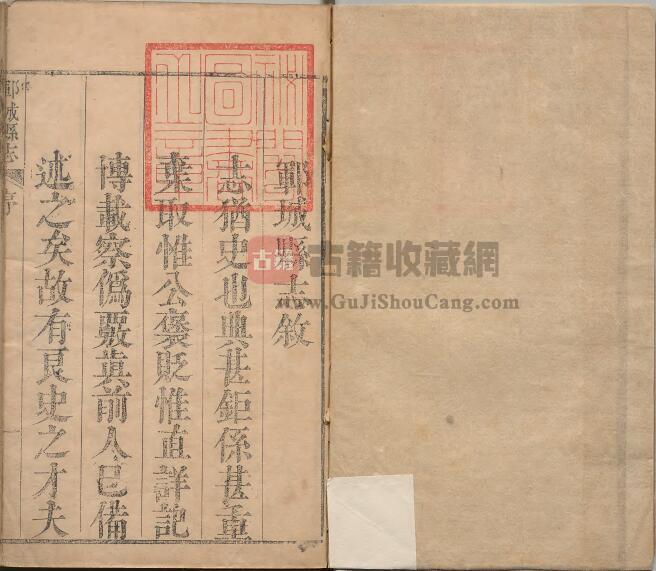 鄆城縣志敘
志猶史也典甚鉅係甚重
棄取惟公褒貶惟直詳記
博載察僞覈真前人已備
述之矣故有良史之才夫
鄆城縣志 序
一
古籍
古籍收藏網
www.GuJiShouCang.com